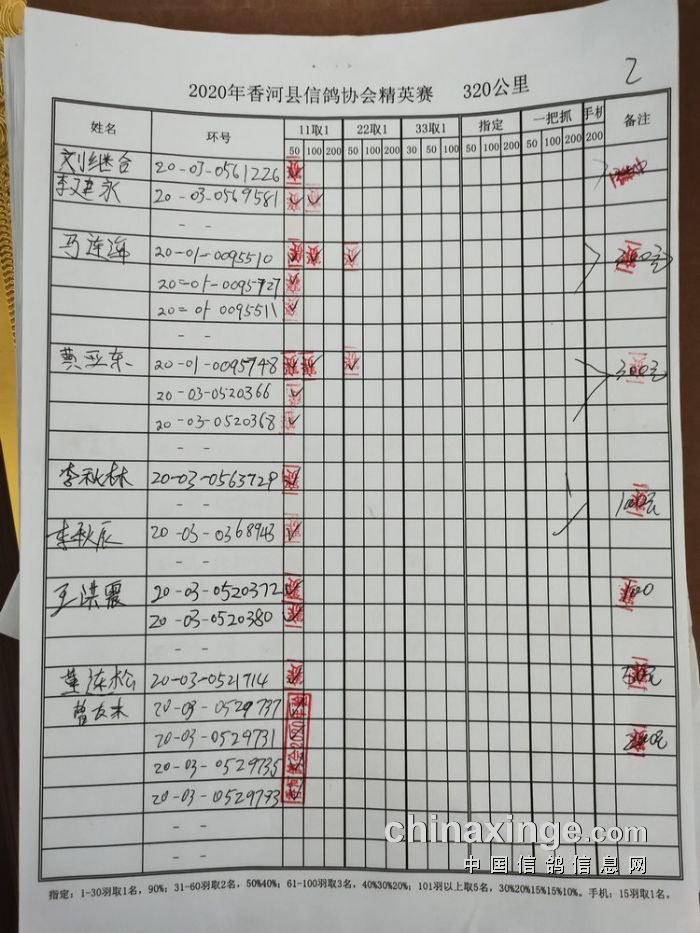 2
2020年香河县信鸽协会精英赛 320公里
姓名 环号 11取1 22取1 33取1 指定 一把抓 手机 备注
50 100 200 50 100 200 30 50 100 50 100 200 50 100 200 200
刘继合 20-03-0561226
李建永 20-03-0569581
- -
马连海 20-01-0095510
20-01-0095727
20-01-0095511
- -
黄亚东 20-01-0095748 300元
20-03-0520366
20-03-0520368
- -
李秋林 20-03-0563729
- - 100元
李秋辰 20-03-0368943
- -
王洪震 20-03-0520372 100
20-03-0520380
- -
董连松 20-03-0521714 50元
曹友来 20-03-0529737
20-03-0529731 200元
20-03-0529735
20-03-0529733
- -
- -
chinaxinge.com
中国信鸽信息网
指定：1-30羽取1名，90%；31-60羽取2名，50%40%；61-100羽取3名，40%30%20%；101羽以上取5名，30%20%15%15%10%。手机：15羽取1名。